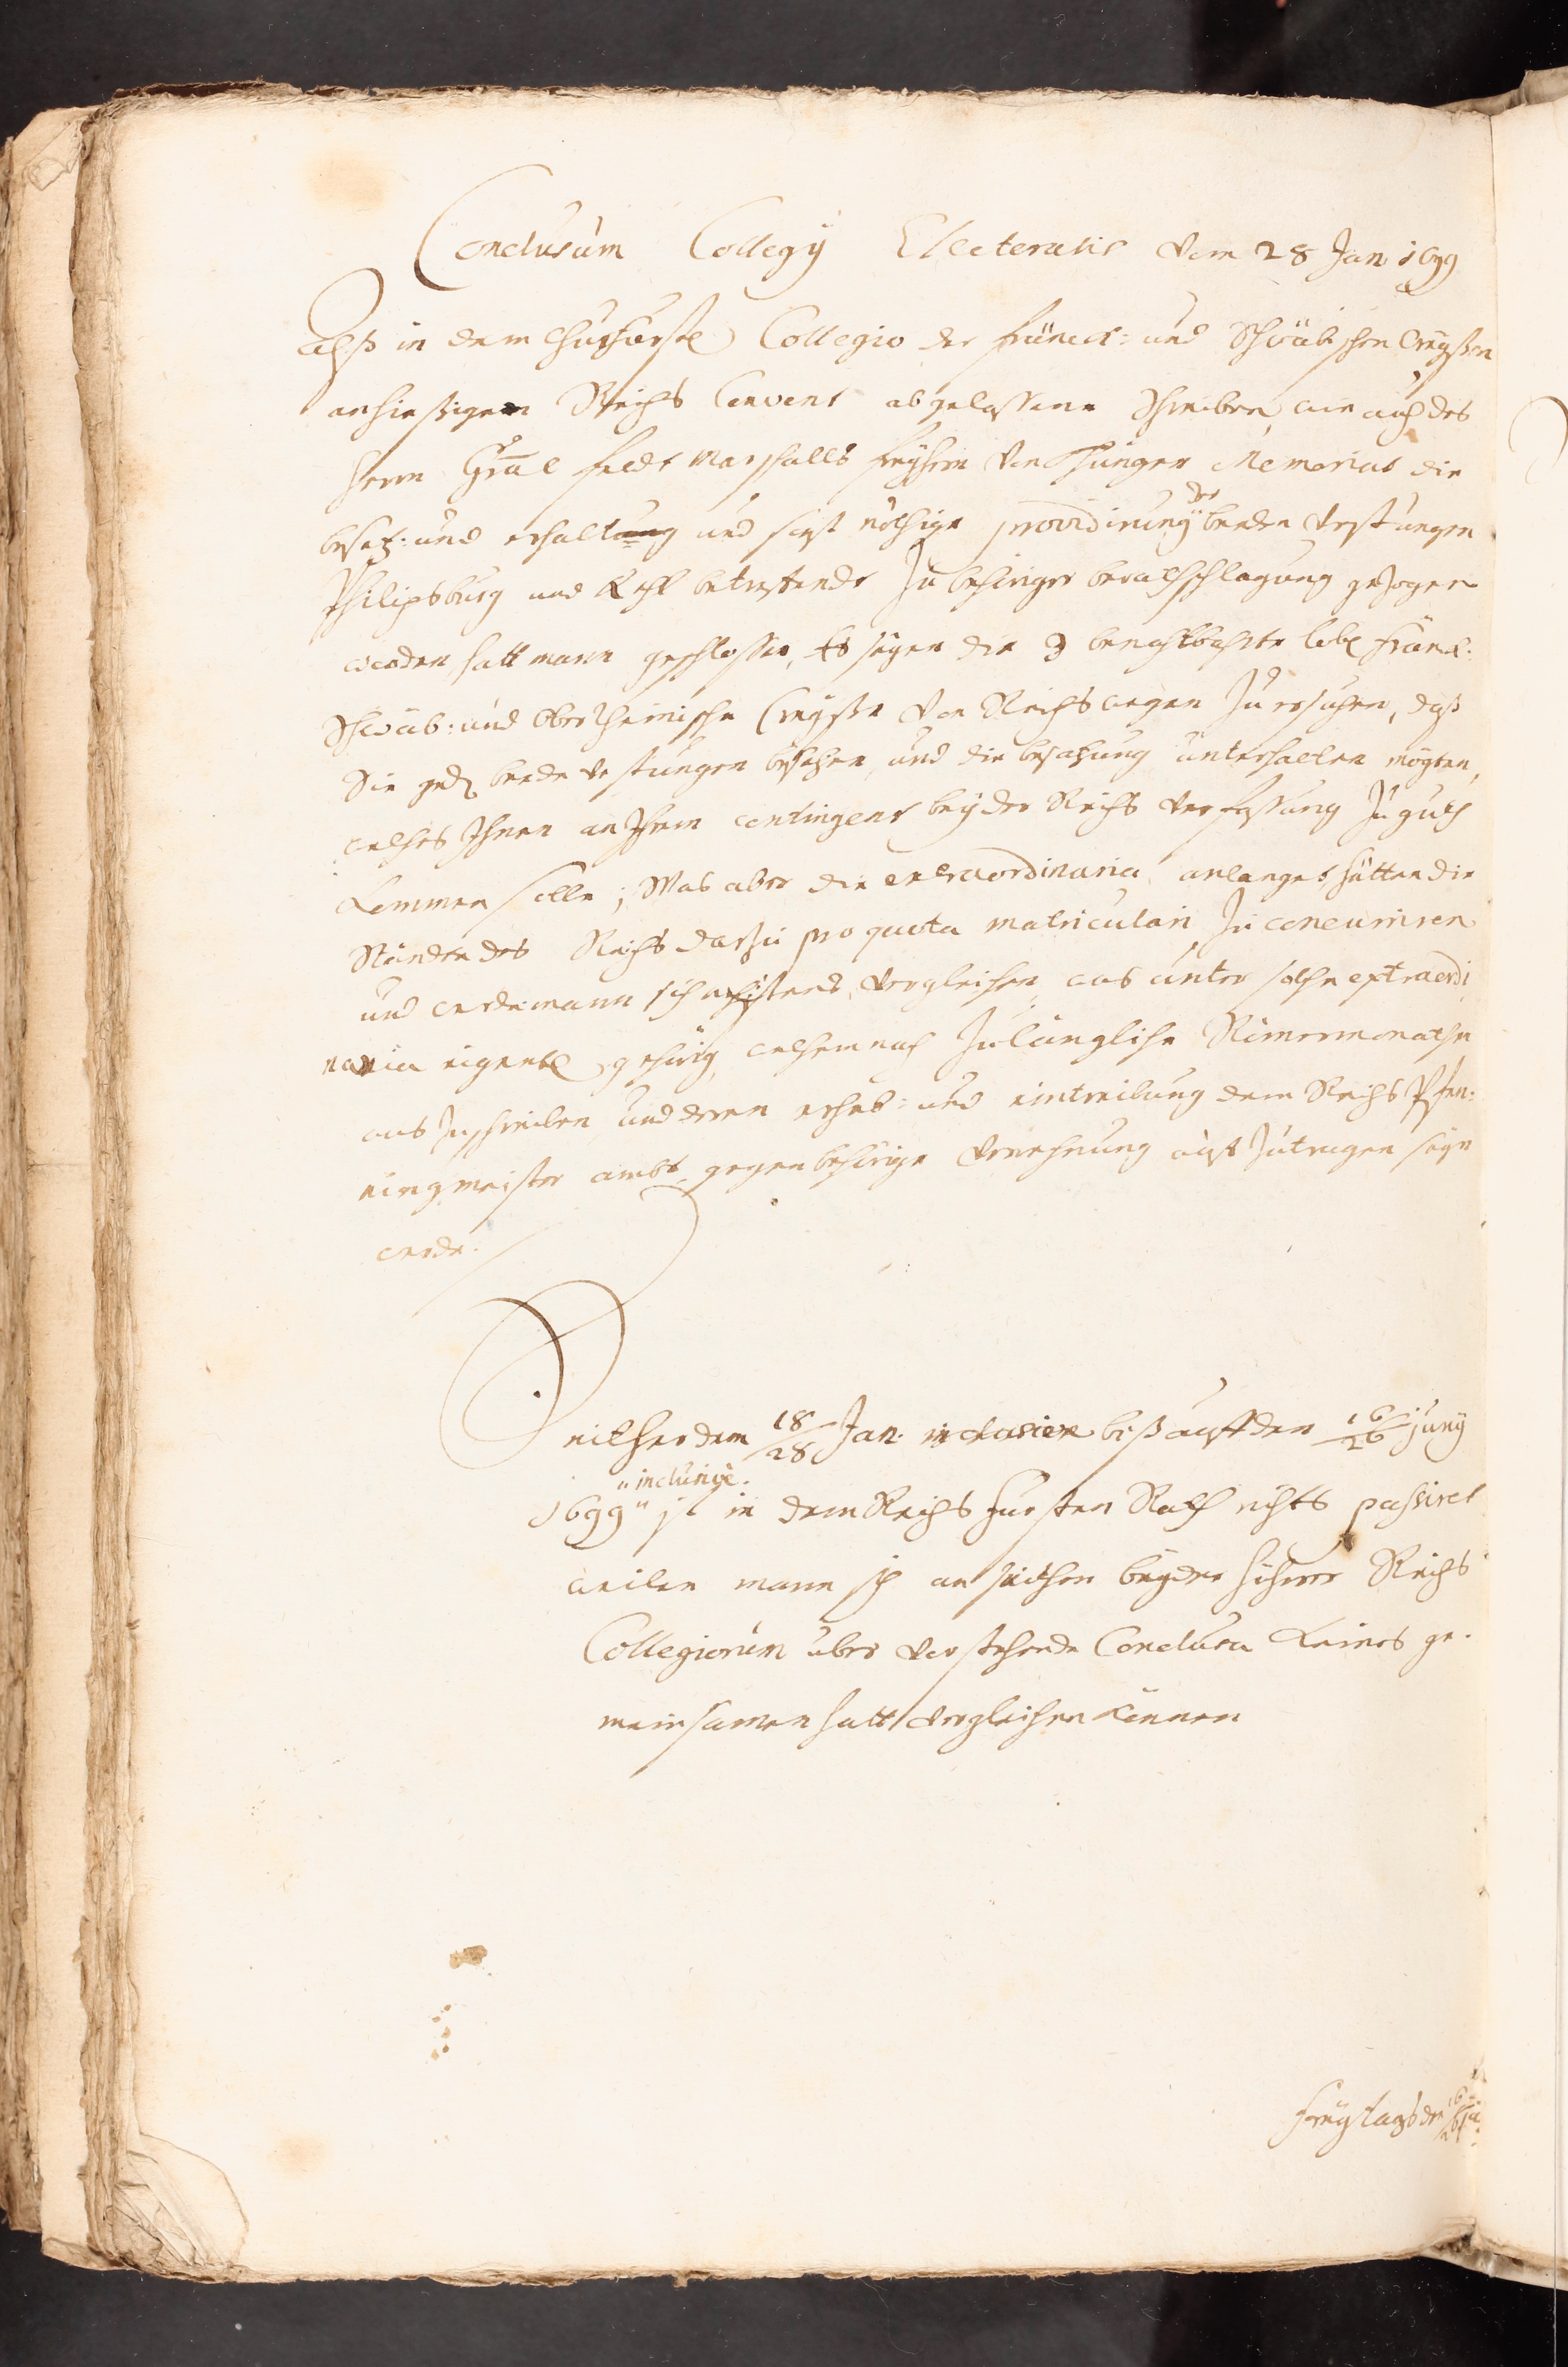 Conclusum Collegÿ Electoralis vom 28 Jan 1699
Alß in dem Churfürstl Collegio der Fränck: und Schwäbischen Creyßen
an hießigen Reichs Convent abgelaßene Schreiben, wie auch des
Herrn Gral Feldt Marschalls Freyhern von Thüngen Memorial die
besetz: und erhaltung und sonst nöthige providirung der beeden Vestungen
Philipsburg und Kehl betreffende zu behöriger berathschlagung gezogen
worden, hatt mann geschlossen, Es seyen die 3 benachbahrte löbl Fränck:
Schwäb: und Ober Rheinische Creyße von Reichs wegen zu ersuchen, daß
Sie gedl beede Vestungen besetzen, und die besatzung unterhalten mögten,
welches Ihnen an Ihrem contingent bey der Reichs verfassung zu guth
kommen solle; Was aber die extraordinaria anlanget, hätten die
Stände des Reichs darzu pro quota matriculari zu concuriren
und werde mann sich nechstens vergleichen, was unter solche extraordi
naria eigentl gehörig, welchemnach zulängliche Römermonathe
auszuschreiben und deren erheb: und eintreibung dem Reichs Pfen:
ningmeister ambt, gegen behörige verrechnung auffzutragen seyn
werde.
Seither dem 18/28 Jan. inclusive biß auff den 16/26 junÿ
"inclusive.
1699" ist in dem Reichs Fürsten Rath nichts passiret
weilen mann sich an seithen beyder höherer Reichs
Collegiorum über vorstehende Conclusa keines ge
meinsamen hatt vergleichen können
Freytags den 16/26 Ju